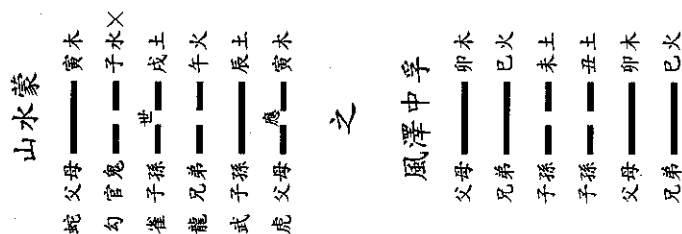 山水蒙
蛇 父母 寅木
勾 官鬼 子水×
雀 子孫 世 戌土
龍 兄弟 午火
武 子孫 辰土
虎 父母 應 寅木
之
風澤中孚
父母 卯木
兄弟 巳火
子孫 未土
子孫 丑土
父母 卯木
兄弟 巳火